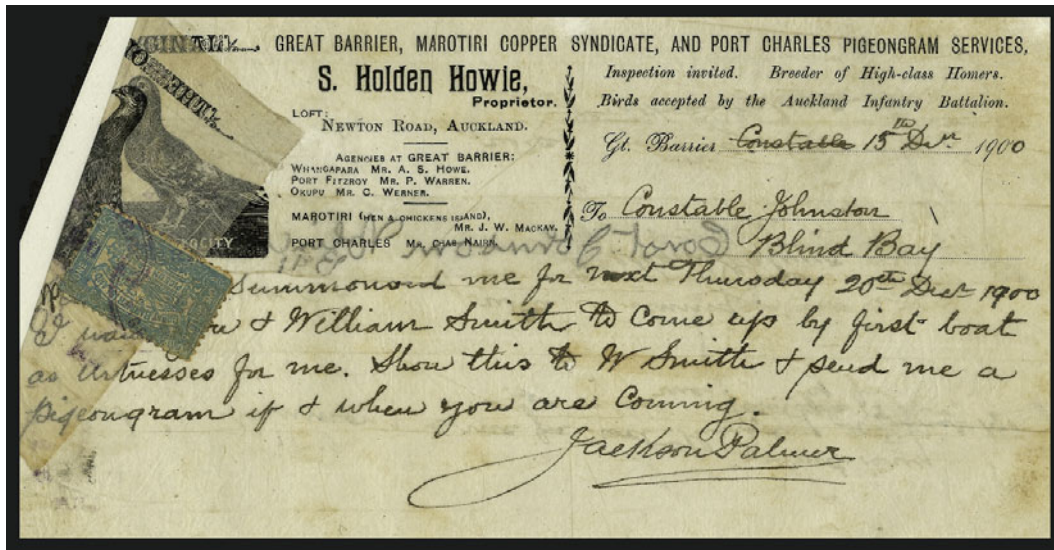 GREAT BARRIER, MAROTIRI COPPER SYNDICATE, AND PORT CHARLES PIGEONGRAM SERVICES,
S. Holden Howie,
Proprietor.
LOFT:
NEWTON ROAD, AUCKLAND.
AGENCIES AT GREAT BARRIER:
WHANGAPARA MR. A. S. HOWE.
PORT FITZROY MR. P. WARREN.
OKUPU MR. C. WERNER.
MAROTIRI (HEN & CHICKENS ISLAND),
MR. J. W. MACKAY.
PORT CHARLES MR. CHAS NAIRN.
Inspection invited. Breeder of High-class Homers.
Birds accepted by the Auckland Infantry Battalion.
Gt. Barrier Constable 15th Decr 1900
To Constable Johnston
Blind Bay
summonsed me for next Thursday 20th Decr 1900
& William Smith to come up by first boat
as witnesses for me. Show this to W Smith & send me a
pigeongram if & when you are coming.
Jackson Palmer